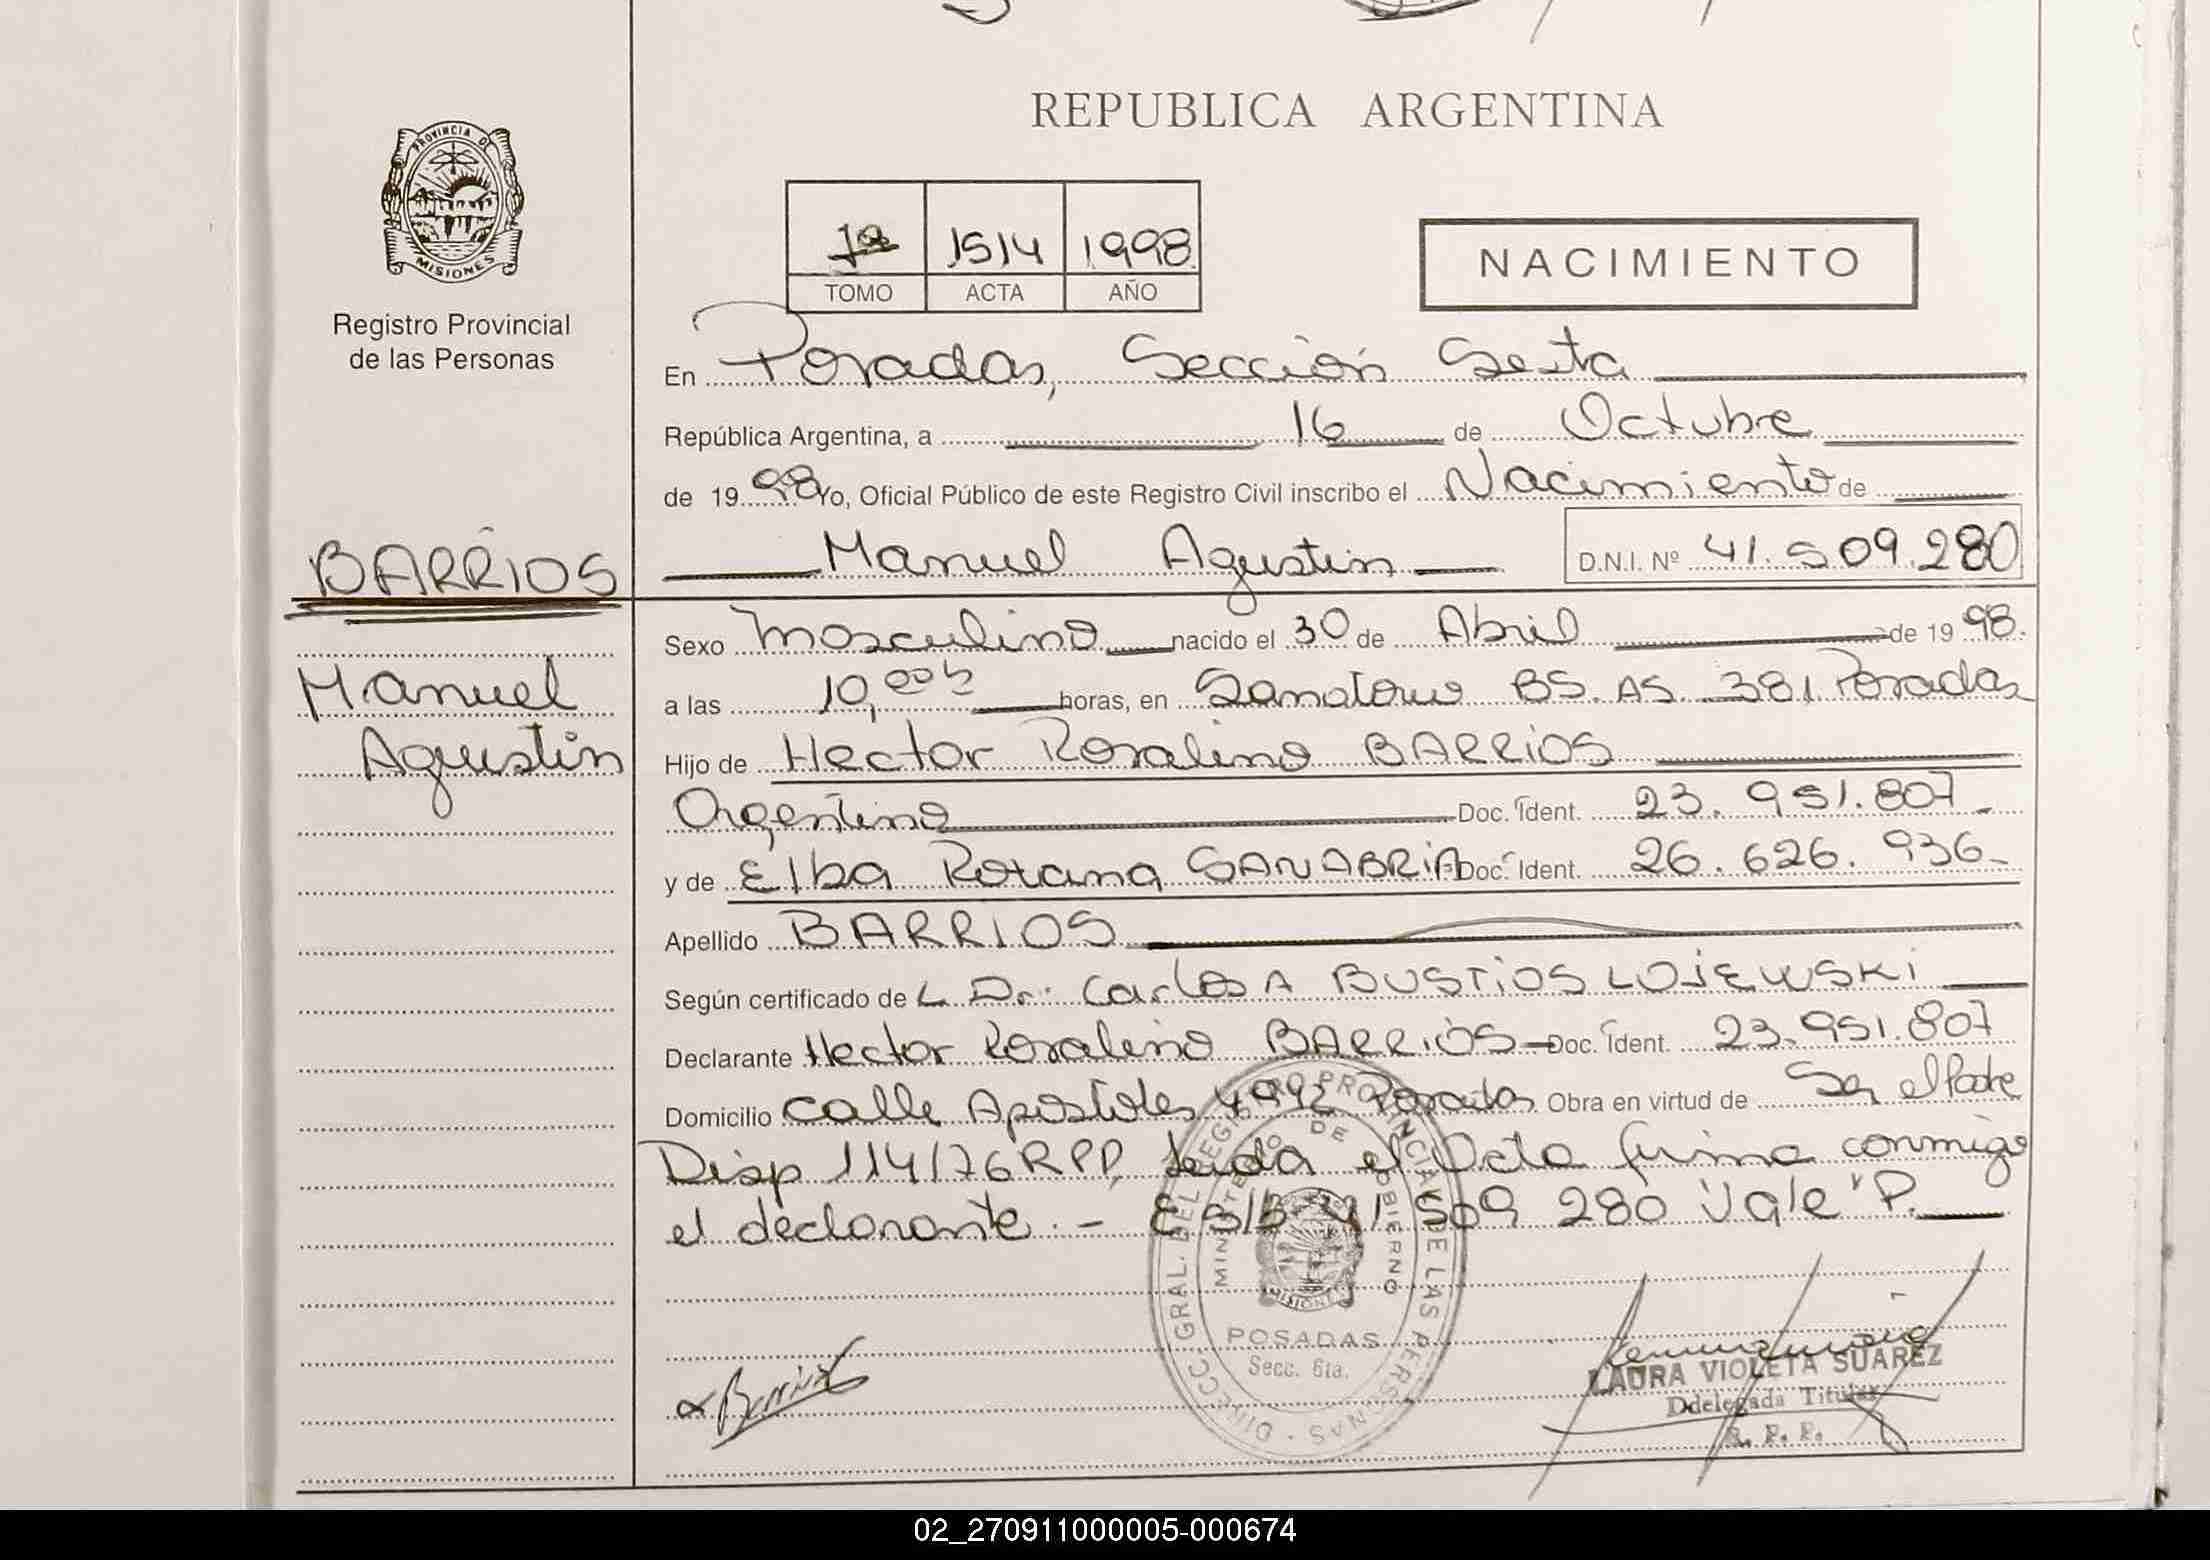 REPUBLICA ARGENTINA
PROVINCIA DE
MISIONES
Registro Provincial
de las Personas
1514 1998
TOMO ACTA AÑO
NACIMIENTO
En Posadas, Sección Sexta
República Argentina, a 16 de Octubre
de 1998 Yo, Oficial Público de este Registro Civil inscribo el Nacimiento de
BARRIOS
Manuel Agustin D.N.I. Nº 41.509.280
Manuel
Agustin
Sexo Masculino nacido el 30 de Abril de 1998.
a las 10,00h horas, en Sanatorio BS. AS. 381 Posadas
Hijo de Hector Rosalino BARRIOS
Argentino Doc. Ident. 23.951.807
y de Elba Roxana SANABRIA Doc. Ident. 26.626.936
Apellido BARRIOS
Según certificado de L Dr. Carlos A BUSTIOS LOJEWSKI
Declarante Hector Rosalino BARRIOS Doc. Ident. 23.951.807
Domicilio calle Apostoles 4992 Posadas Obra en virtud de Ser el Padre
Disp 114/76 RPP, Leida el Acta firma conmigo
el declarante.- E 3/B 41 509 280 Vale"P.
DIRECC. GRAL. DEL REGISTRO PROVINCIAL DE LAS PERSONAS
MINISTERIO DE GOBIERNO
MISIONES
POSADAS
Secc. 6ta.
Barrios
LAURA VIOLETA SUAREZ
Ddelegada Titular
R. P. P.
02_270911000005-000674